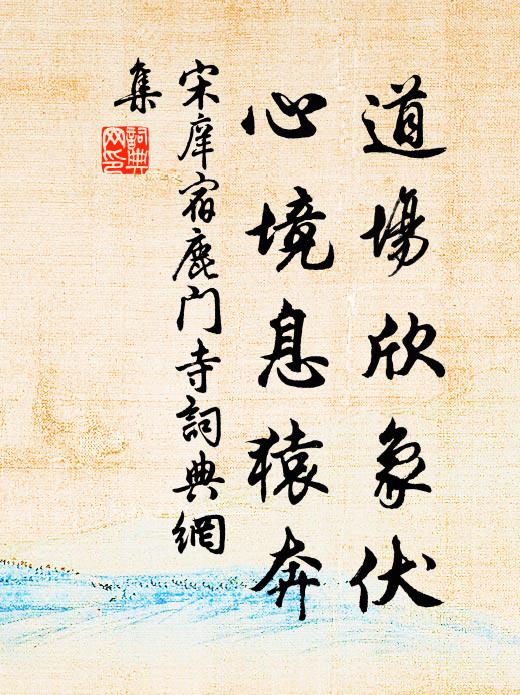 道場欣象伏
心境息猿奔
宋庠宿鹿門寺詞典網
集
詞典
网印